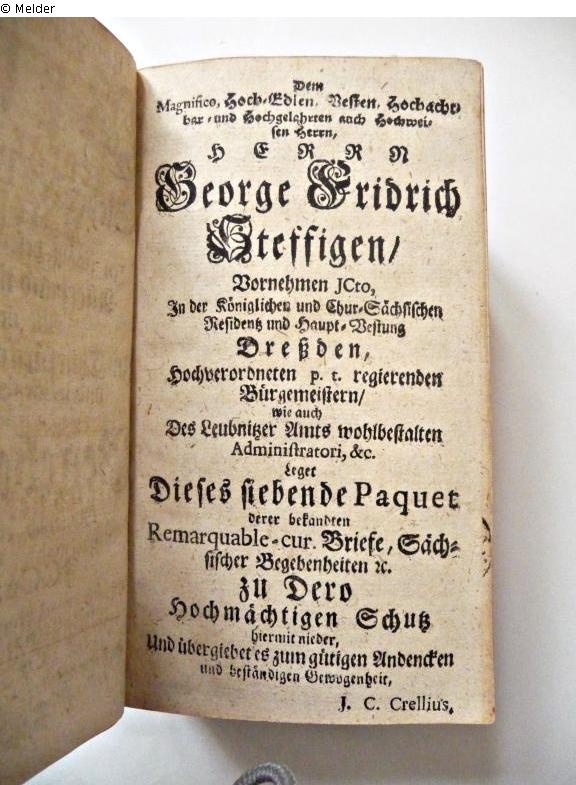 © Melder
Dem
Magnifico, Hoch-Edlen, Vesten, Hochacht-
bar- und Hochgelahrten auch Hochwei-
sen Herrn,
HERRN
George Fridrich
Steffigen/
Vornehmen JCto,
In der Königlichen und Chur-Sächsischen
Residentz und Haupt-Vestung
Dreßden,
Hochverordneten p. t. regierenden
Bürgemeistern/
wie auch
Des Leubnitzer Amts wohlbestalten
Administratori, &c.
Leget
Dieses siebende Paquet
derer bekandten
Remarquable-cur. Briefe, Säch-
sischer Begebenheiten ꝛc.
zu Dero
Hochmächtigen Schutz
hiermit nieder,
Und übergiebet es zum gütigen Andencken
und beständigen Gewogenheit,
J. C. Crellius.